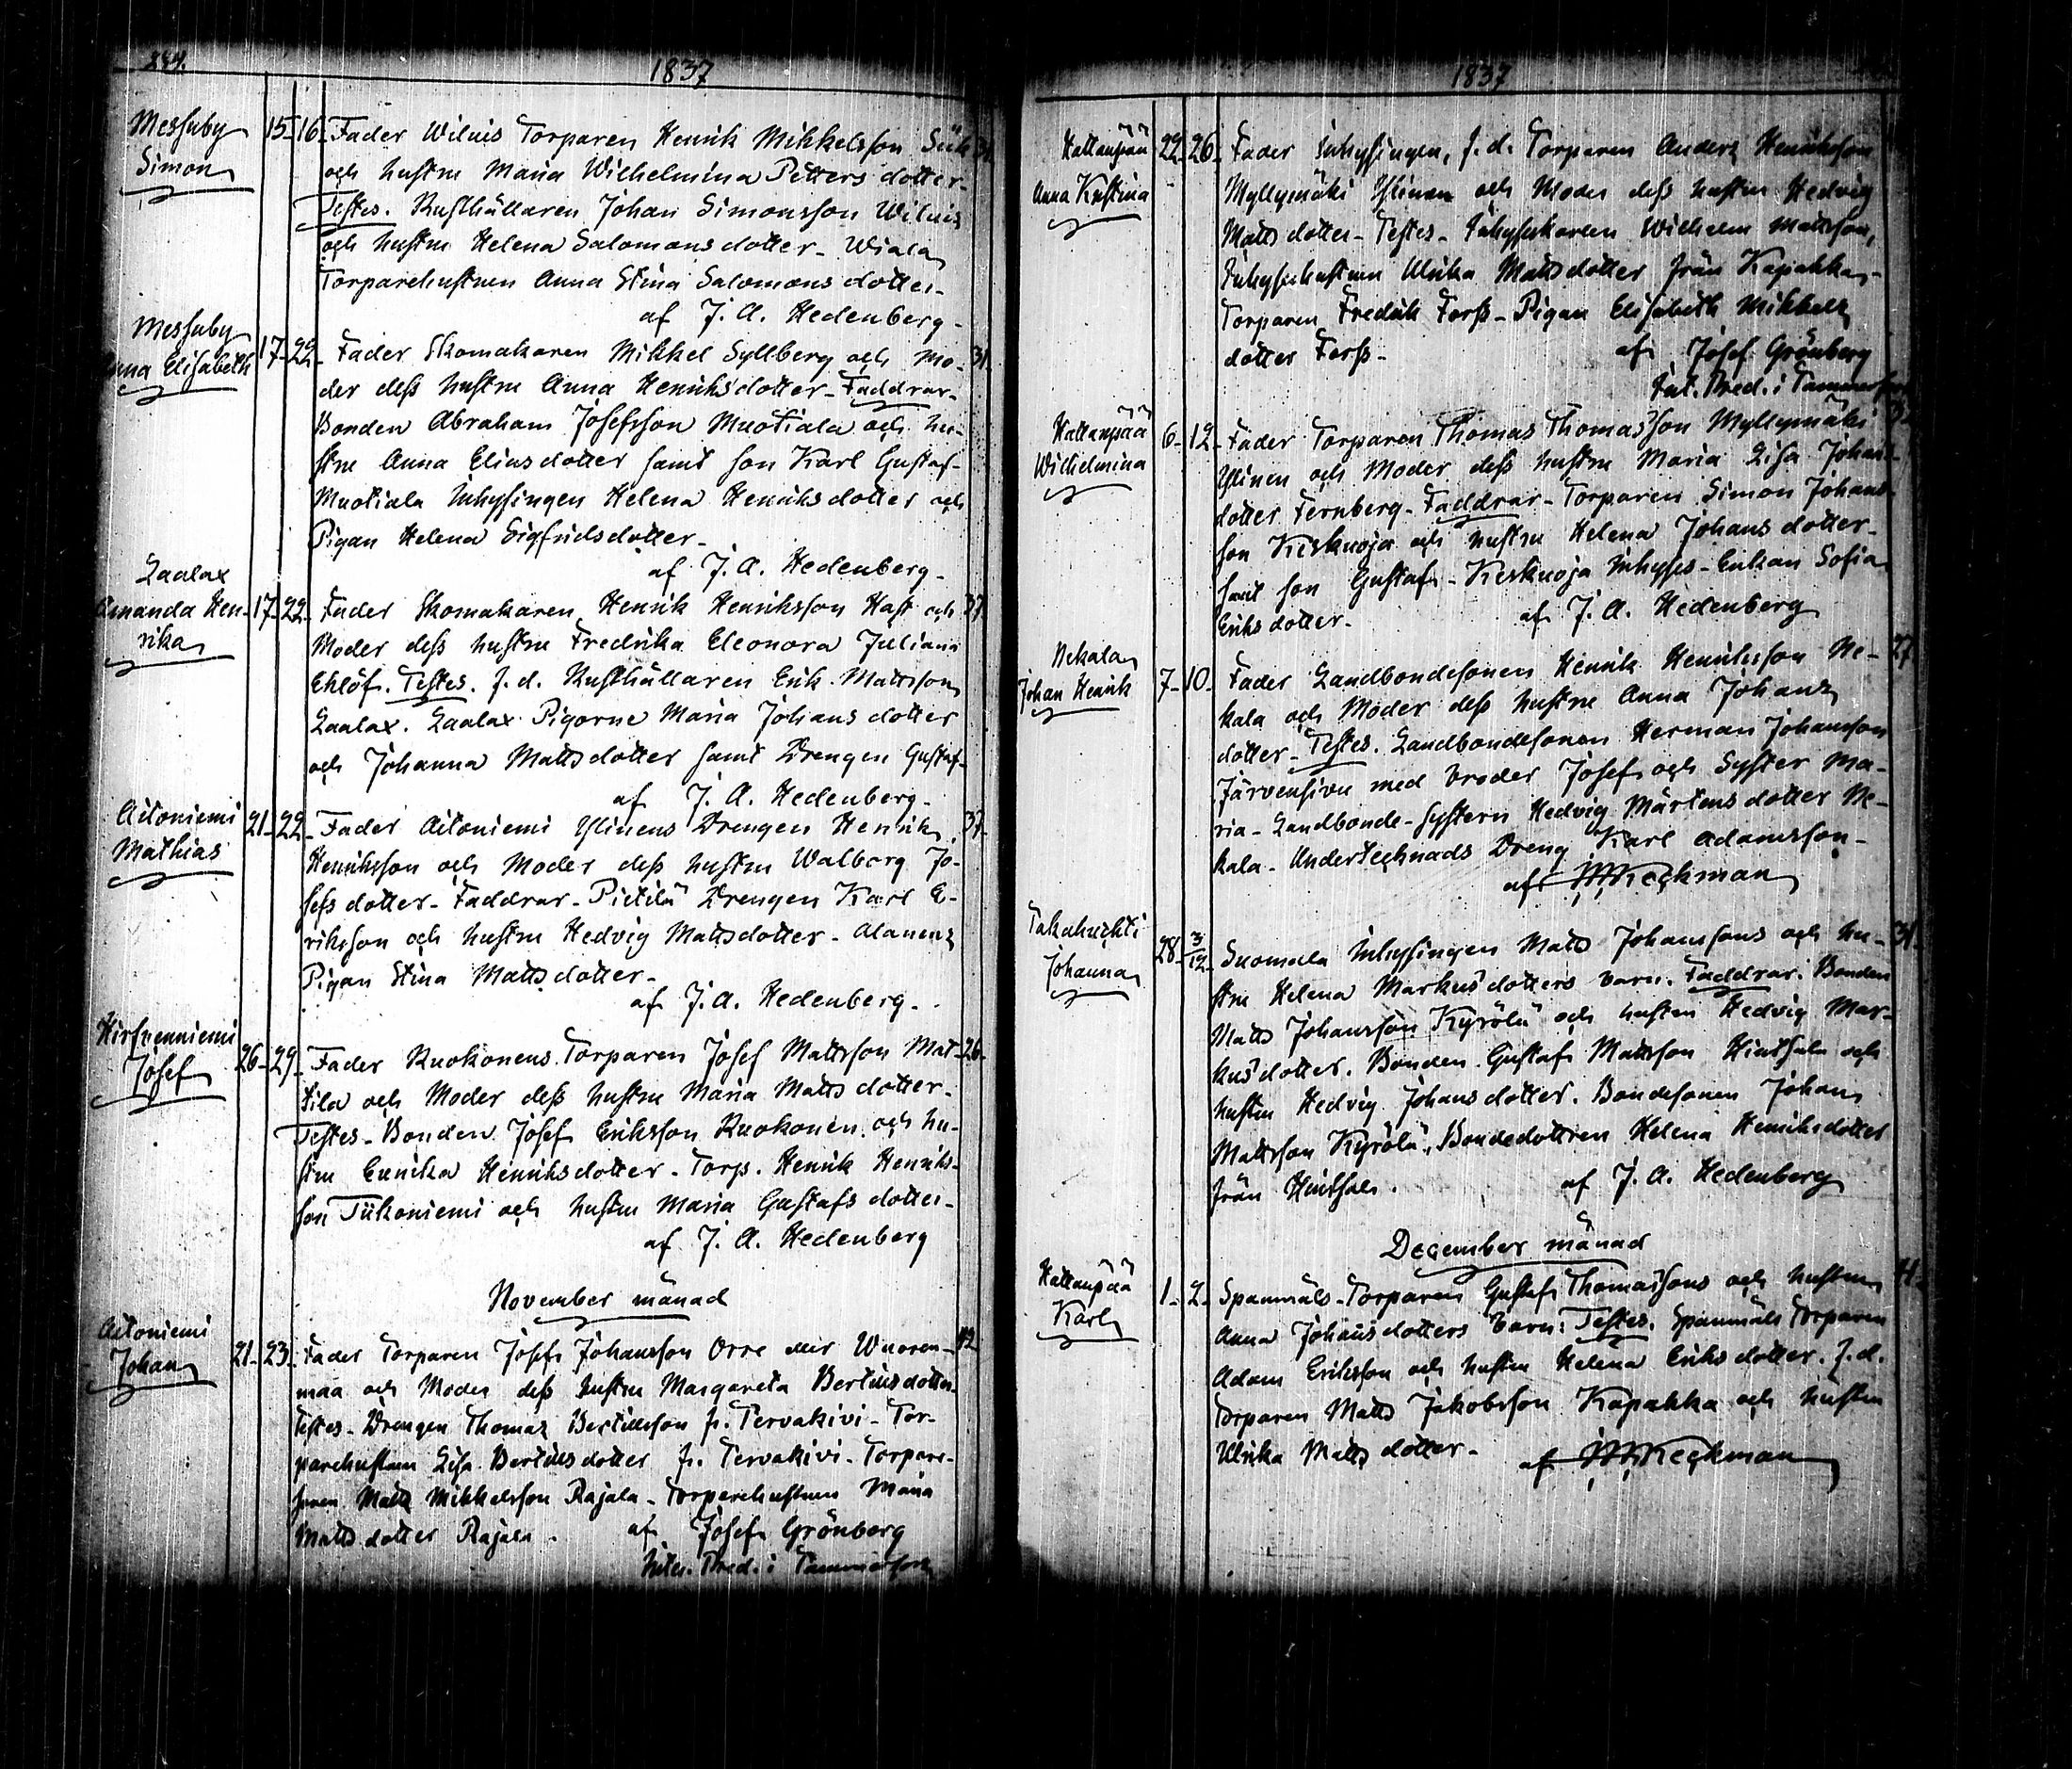 284.
1837
Messuby
Simon
15-16-
Fader Wilnis Torparen Henrik Mikkelsson Siik
och hustru Maria Wilhelmina Petters dotter-
Testes. Rusthållaren Johan Simonsson Wilnis
och hustru Helena Salomons dotter- Wiala
Torparehustrun Anna Stina Salomons dotter-
af J. A. Hedenberg-
Messuby
Anna Elisabeth
17-22-
Fader Skomakaren Mikkel Syllberg och Mo- 31
der dess hustru Anna Henriksdotter- Faddrar-
Bonden Abraham Josefsson Muotiala och hu-
stru Anna Eliasdotter samt son Karl Gustaf-
Muotiala Inhysingen Helena Henriksdotter och
Pigan Helena Sigfridsdotter-
af J. A. Hedenberg-
Laalax
Amanda Hen-
rika
17-22-
Fader Skomakaren Henrik Henriksson Hast och 37
Moder dess hustru Fredrika Eleonora Juliana
Ehlöf. Testes. f.d. Rusthållaren Erik Mattsson
Laalax. Laalax Pigorne Maria Johans dotter
och Johanna Mattsdotter samt Drengen Gustaf-
af J. A. Hedenberg-
Aitoniemi
Mathias
21-22-
Fader Aitoniemi Ylinens Drengen Henrik 37-
Henriksson och Moder dess hustru Walborg Jo-
sefs dotter- Faddrar- Pietilä Drengen Karl E-
riksson och hustru Hedvig Mattsdotter- Alanens
Pigan Stina Mattsdotter-
af J. A. Hedenberg-
Hirfvenniemi
Josef
26-29-
Fader Ruokonens Torparen Josef Mattsson Mat- 26-
tila och Moder dess hustru Maria Matts dotter-
Testes- Bonden Josef Eriksson Ruokonen och hu-
stru Eunika Henriksdotter- Torp. Henrik Henriks-
son Tiikoniemi och hustru Maria Gustafs dotter-
af J. A. Hedenberg
November månad
Aitoniemi
Johan
21-23-
Fader Torparen Josef Johansson Orre eller Wuoren- 42
maa och Moder dess hustru Margareta Bertilsdotter-
Testes- Drengen Thomas Bertillsson fr. Tervakivi- Tor-
parehustrun Lisa Bertilsdotter fr. Tervakivi- Torpare-
sonen Matts Mikkelsson Rajala- Torparehustrun Maria
Matts dotter Rajala-
af Josef Grönberg
Inter. Pred. i Tammerfors
1837
Hattanpää
Anna Kristina
22-26-
Fader Inhysingen, f.d. Torparen Anders Henriksson
Myllymäki Ylinen och Moder dess hustru Hedvig
Matts dotter- Testes- Inhyseskarlen Wilhelm Mattsson,
Inhyseshustrun Ulrika Mattsdotter från Kapakka-
Torparen Fredrik Forss- Pigan Elisabeth Mikkels
dotter Forss-
af Josef Grönberg
Int. Pred. i Tammerfors
Hattanpää
Wilhelmina
6-12-
Fader Torparen Thomas Thomasson Myllymäki
Ylinen och Moder dess hustru Maria Lisa Johans-
dotter Fernberg- Faddrar- Torparen Simon Johans-
son Keskuoja och hustru Helena Johans dotter-
samt son Gustaf- Keskuoja Inhyses- Enkan Sofia
Eriks dotter-
af J. A. Hedenberg
Nekala
Johan Henrik
7-10-
Fader Landbondesonen Henrik Henriksson Ne- 27
kala och Moder dess hustru Anna Johans
dotter- Testes. Landbondesonen Herman Johansson
Järvensivu med broder Josef och Syster Ma-
ria- Landbonde- Systern Hedvig Mårtens dotter Ne-
kala- Undertecknads Dreng Karl Adamsson-
af Keckman
Takahuchti
Johanna
28- 3/12-
Suomela Inhysingen Matts Johanssons och hu- 31-
stru Helena Markusdotters barn. Faddrar. Bonden
Matts Johansson Kyrölä och hustru Hedvig Mar-
kusdotter. Bonden Gustaf Mattsson Hintsala och
hustru Hedvig Johansdotter. Bondesonen Johan
Mattsson Kyrölä, Bondedottren Helena Henriksdotter
från Hintsala.
af J. A. Hedenberg
December månad
Hattanpää
Karl
1-2-
Spannmåls-Torparen Gustaf Thomassons och hustrun
Anna Johansdotters barn. Testes. Spannmåls Torparen
Adam Eriksson och hustru Helena Eriks dotter. f.d.
Torparen Matts Jakobsson Kapakka och hustru
Ulrika Matts dotter-
af Keckman